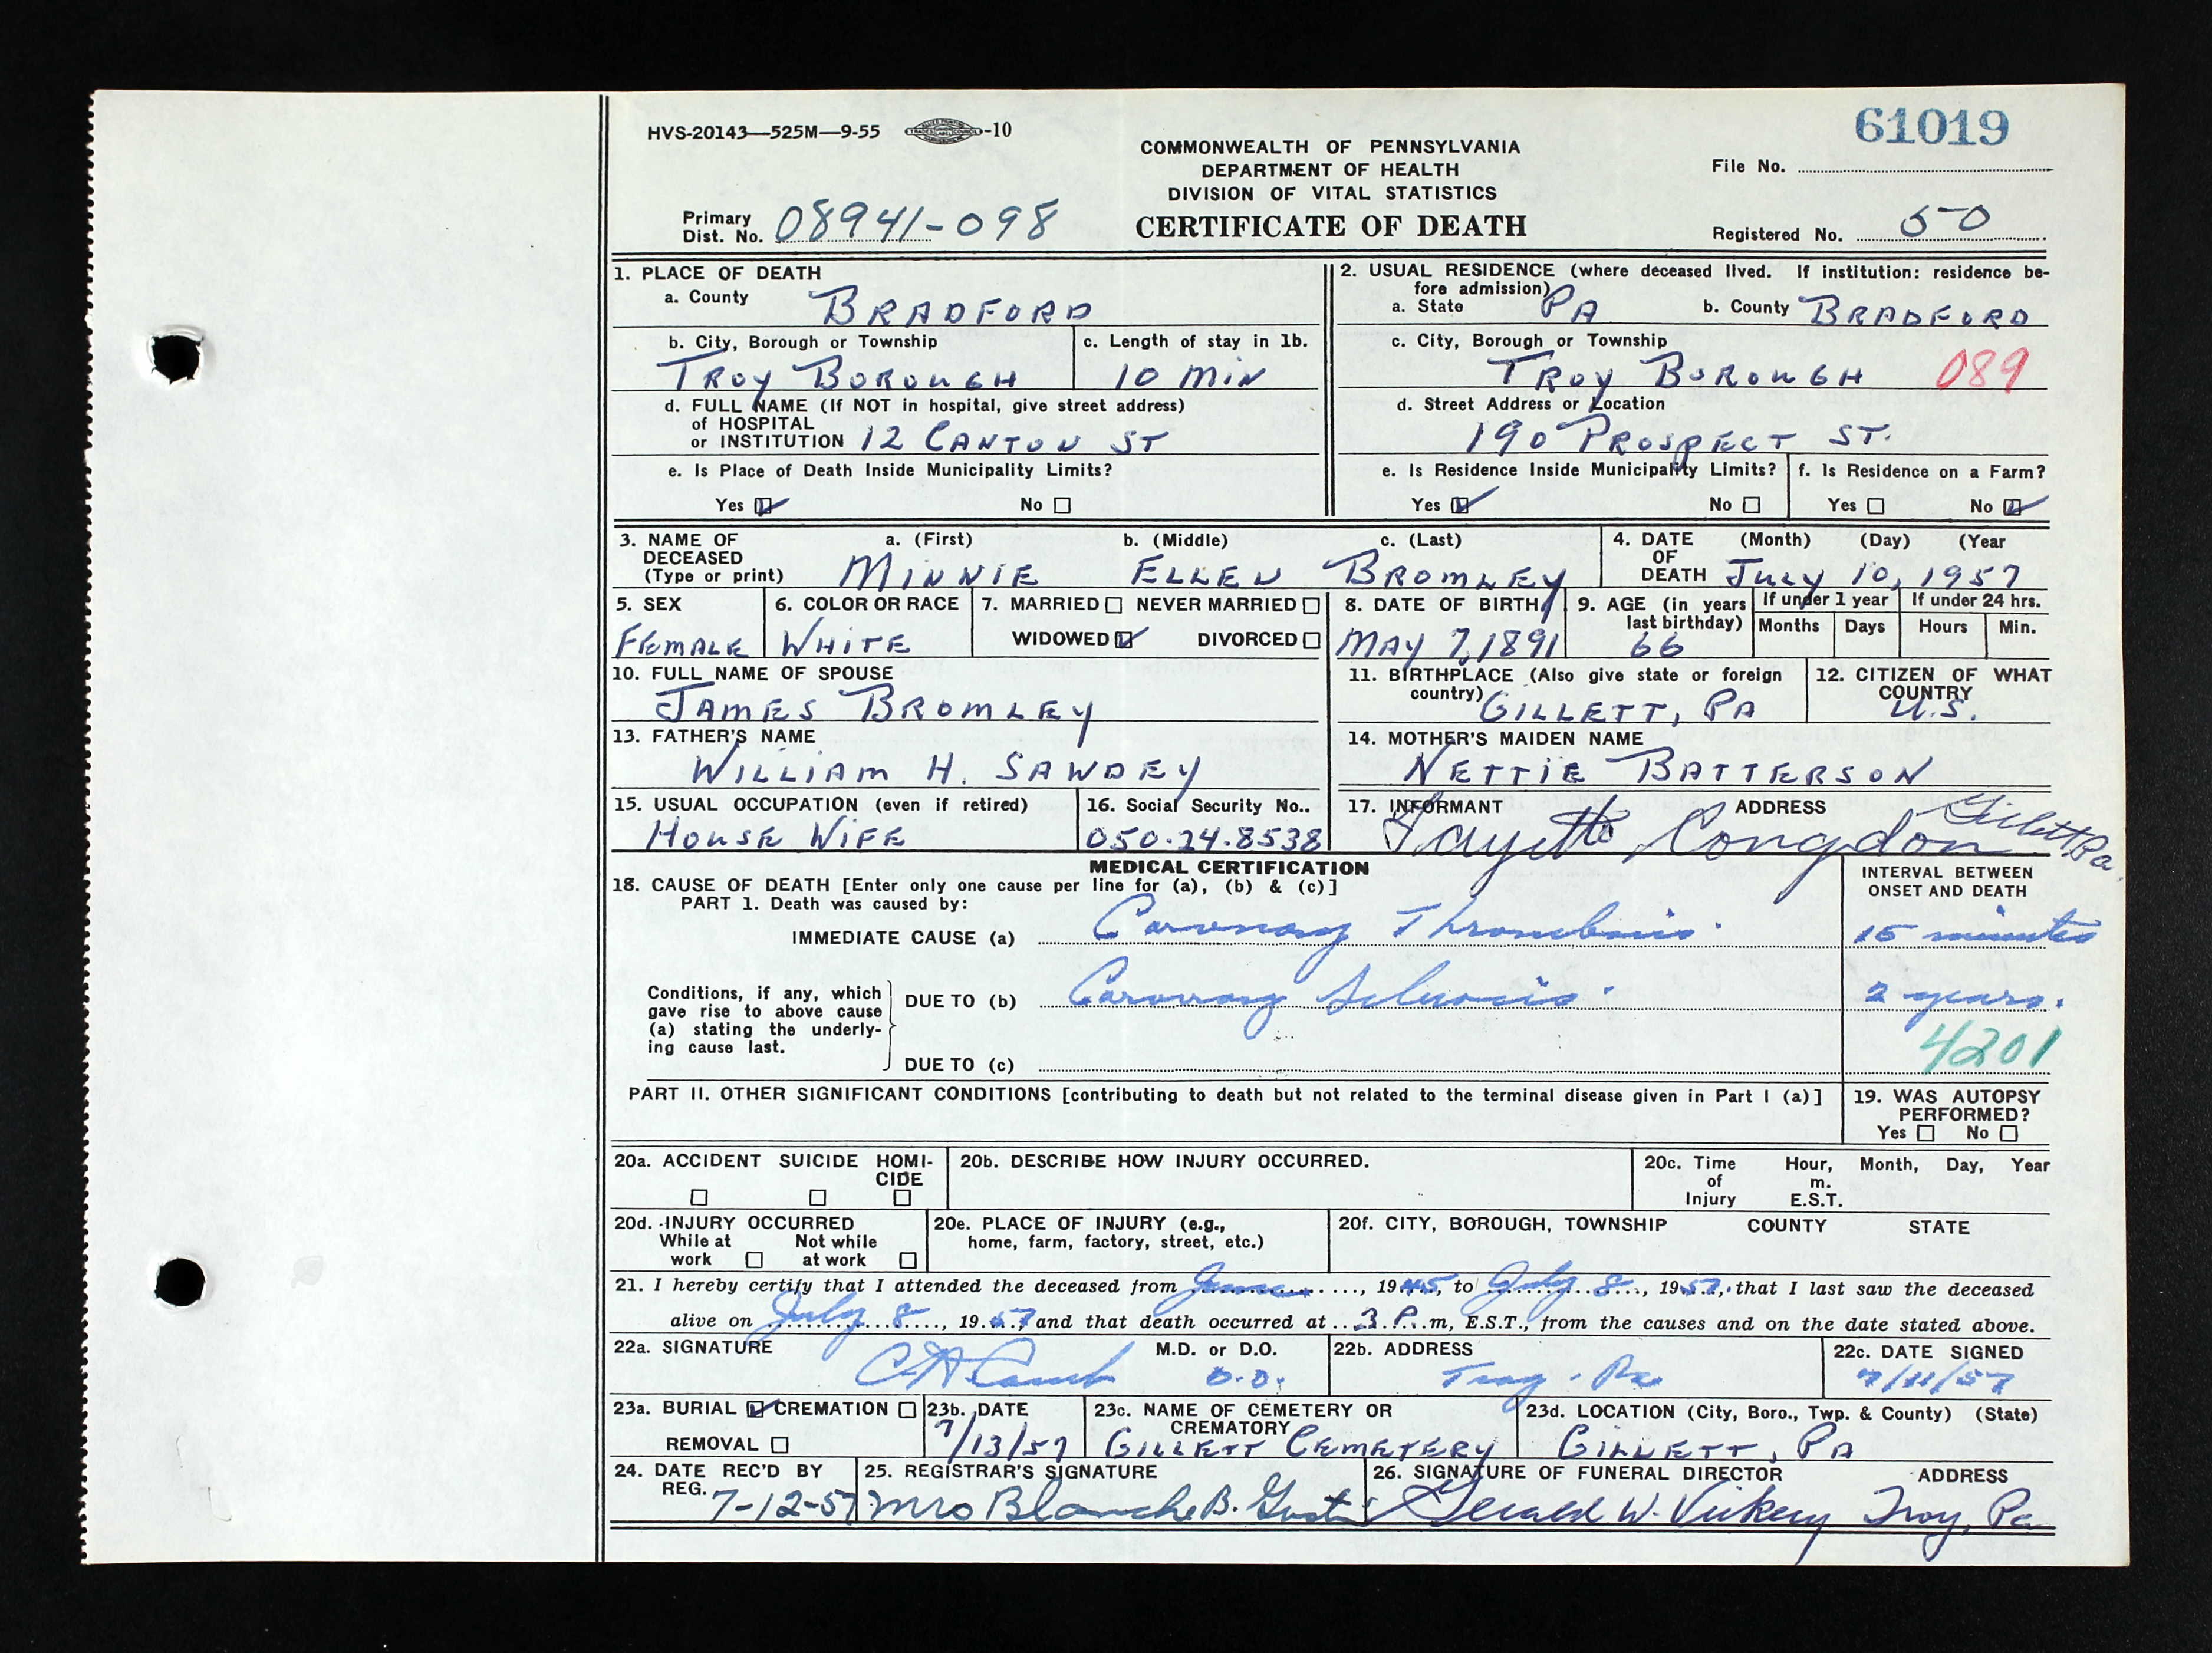 HVS-20143—525M—9-55 -10
61019
COMMONWEALTH OF PENNSYLVANIA
DEPARTMENT OF HEALTH
DIVISION OF VITAL STATISTICS
CERTIFICATE OF DEATH
File No.
Primary Dist. No. 08941-098
Registered No. 50
1. PLACE OF DEATH
a. County BRADFORD
b. City, Borough or Township TROY BOROUGH
c. Length of stay in 1b. 10 MIN
d. FULL NAME (If NOT in hospital, give street address)
of HOSPITAL
or INSTITUTION 12 CANTON ST
e. Is Place of Death Inside Municipality Limits?
Yes No
2. USUAL RESIDENCE (where deceased lived. If institution: residence be-
fore admission)
a. State PA b. County BRADFORD
c. City, Borough or Township
TROY BOROUGH 089
d. Street Address or Location
190 PROSPECT ST.
e. Is Residence Inside Municipality Limits? f. Is Residence on a Farm?
Yes No Yes No
3. NAME OF DECEASED (Type or print)
a. (First) b. (Middle) c. (Last)
MINNIE ELLEN BROMLEY
4. DATE OF DEATH (Month) (Day) (Year
JULY 10, 1957
5. SEX FEMALE
6. COLOR OR RACE WHITE
7. MARRIED NEVER MARRIED
WIDOWED DIVORCED
8. DATE OF BIRTH MAY 7, 1891
9. AGE (in years last birthday) 66
If under 1 year If under 24 hrs.
Months Days Hours Min.
10. FULL NAME OF SPOUSE
JAMES BROMLEY
11. BIRTHPLACE (Also give state or foreign country) GILLETT, PA
12. CITIZEN OF WHAT COUNTRY U.S.
13. FATHER'S NAME
WILLIAM H. SAWDEY
14. MOTHER'S MAIDEN NAME
NETTIE BATTERSON
15. USUAL OCCUPATION (even if retired)
HOUSE WIFE
16. Social Security No..
050.24.8538
17. INFORMANT ADDRESS
Fayette Congdon Gillett Pa.
MEDICAL CERTIFICATION
18. CAUSE OF DEATH [Enter only one cause per line for (a), (b) & (c)]
PART 1. Death was caused by:
INTERVAL BETWEEN ONSET AND DEATH
IMMEDIATE CAUSE (a) Coronary Thrombosis. 15 minutes
Conditions, if any, which
gave rise to above cause
(a) stating the underly-
ing cause last.
DUE TO (b) Coronary Sclerosis. 2 years.
4201
DUE TO (c)
PART II. OTHER SIGNIFICANT CONDITIONS [contributing to death but not related to the terminal disease given in Part I (a)]
19. WAS AUTOPSY PERFORMED?
Yes No
20a. ACCIDENT SUICIDE HOMI-CIDE
20b. DESCRIBE HOW INJURY OCCURRED.
20c. Time of Injury Hour, Month, Day, Year
m.
E.S.T.
20d. INJURY OCCURRED
While at work Not while at work
20e. PLACE OF INJURY (e.g.,
home, farm, factory, street, etc.)
20f. CITY, BOROUGH, TOWNSHIP COUNTY STATE
21. I hereby certify that I attended the deceased from June, 1945, to July 8, 1957, that I last saw the deceased
alive on July 8, 1957, and that death occurred at 3 P.m, E.S.T., from the causes and on the date stated above.
22a. SIGNATURE M.D. or D.O.
D.O.
22b. ADDRESS
Troy. Pa
22c. DATE SIGNED
7/11/57
23a. BURIAL CREMATION
REMOVAL
23b. DATE
7/13/57
23c. NAME OF CEMETERY OR CREMATORY
GILLETT CEMETERY
23d. LOCATION (City, Boro., Twp. & County) (State)
GILLETT, PA
24. DATE REC'D BY REG. 7-12-57
25. REGISTRAR'S SIGNATURE
Mrs Blanche B.
26. SIGNATURE OF FUNERAL DIRECTOR ADDRESS
Gerald W. Vickery Troy, Pa